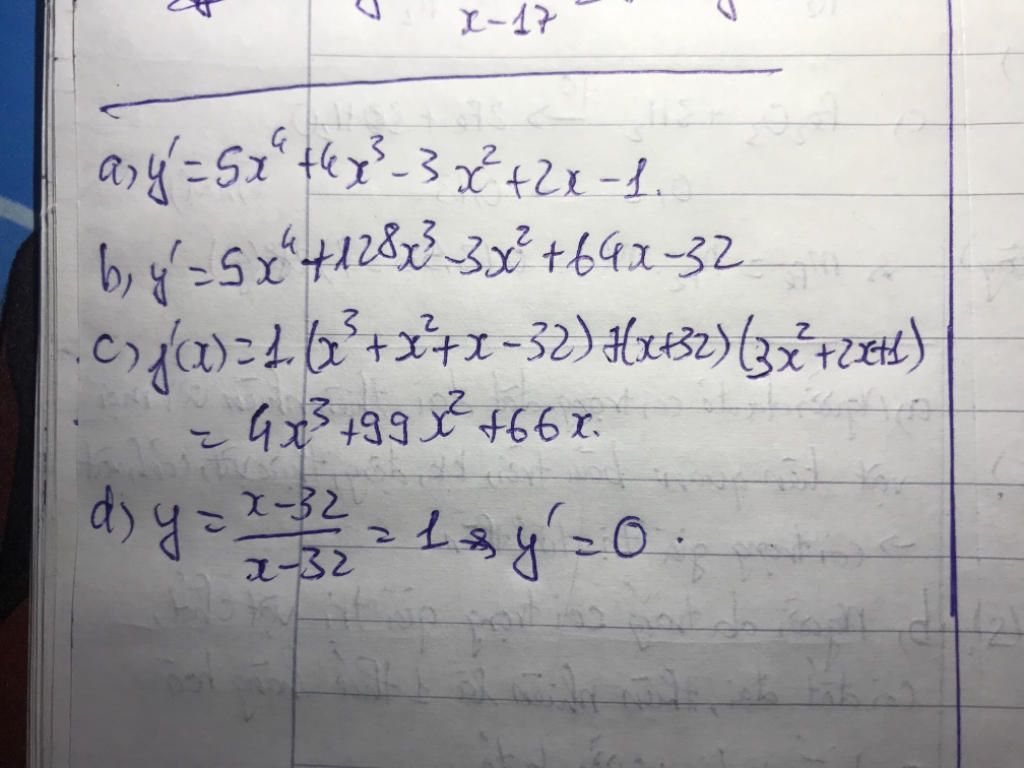 x-17
a, y' = 5x⁴ + 4x³ - 3x² + 2x - 1.
b, y' = 5x⁴ + 128x³ - 3x² + 64x - 32
c) y'(x) = 1.(x³ + x² + x - 32) + (x+32)(3x² + 2x+1)
= 4x³ + 99x² + 66x.
d) y = \frac{x-32}{x-32} = 1 → y' = 0.